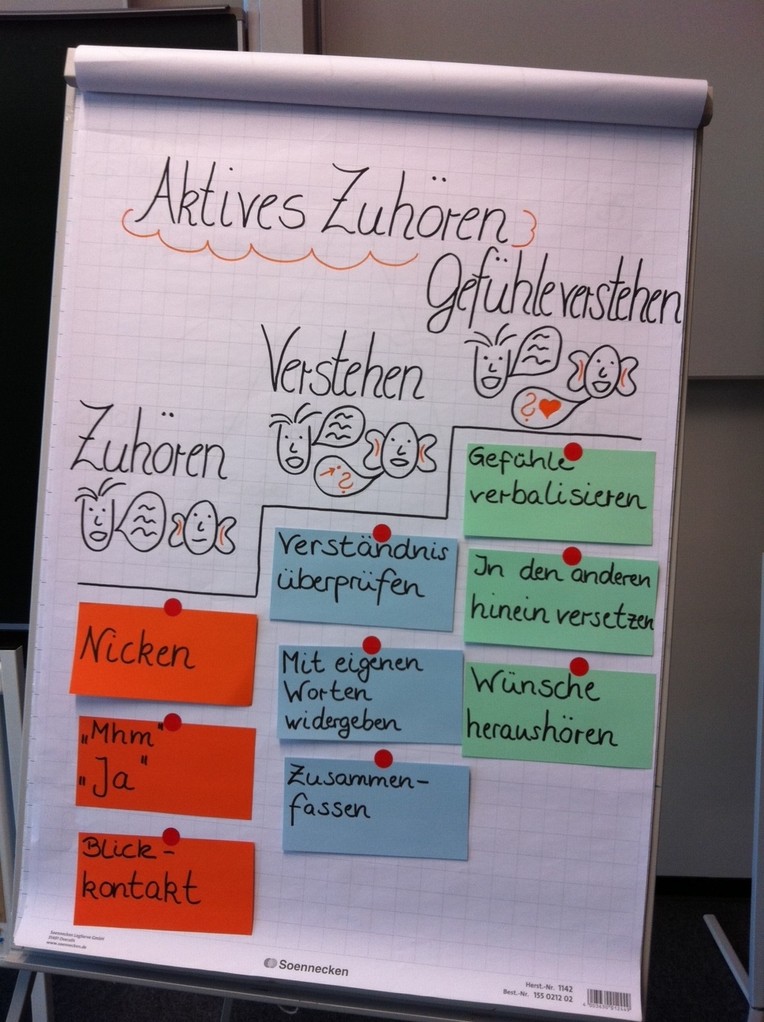 Aktives Zuhören
Zuhören
Nicken
„Mhm"
„Ja"
Blick-
kontakt
Verstehen
?
Verständnis
überprüfen
Mit eigenen
Worten
widergeben
Zusammen-
fassen
Gefühle verstehen
?
Gefühle
verbalisieren
In den anderen
hinein versetzen
Wünsche
heraushören
www.soennecken.de
Soennecken
Herst.-Nr. 1142
Best.-Nr. 155 0212 02